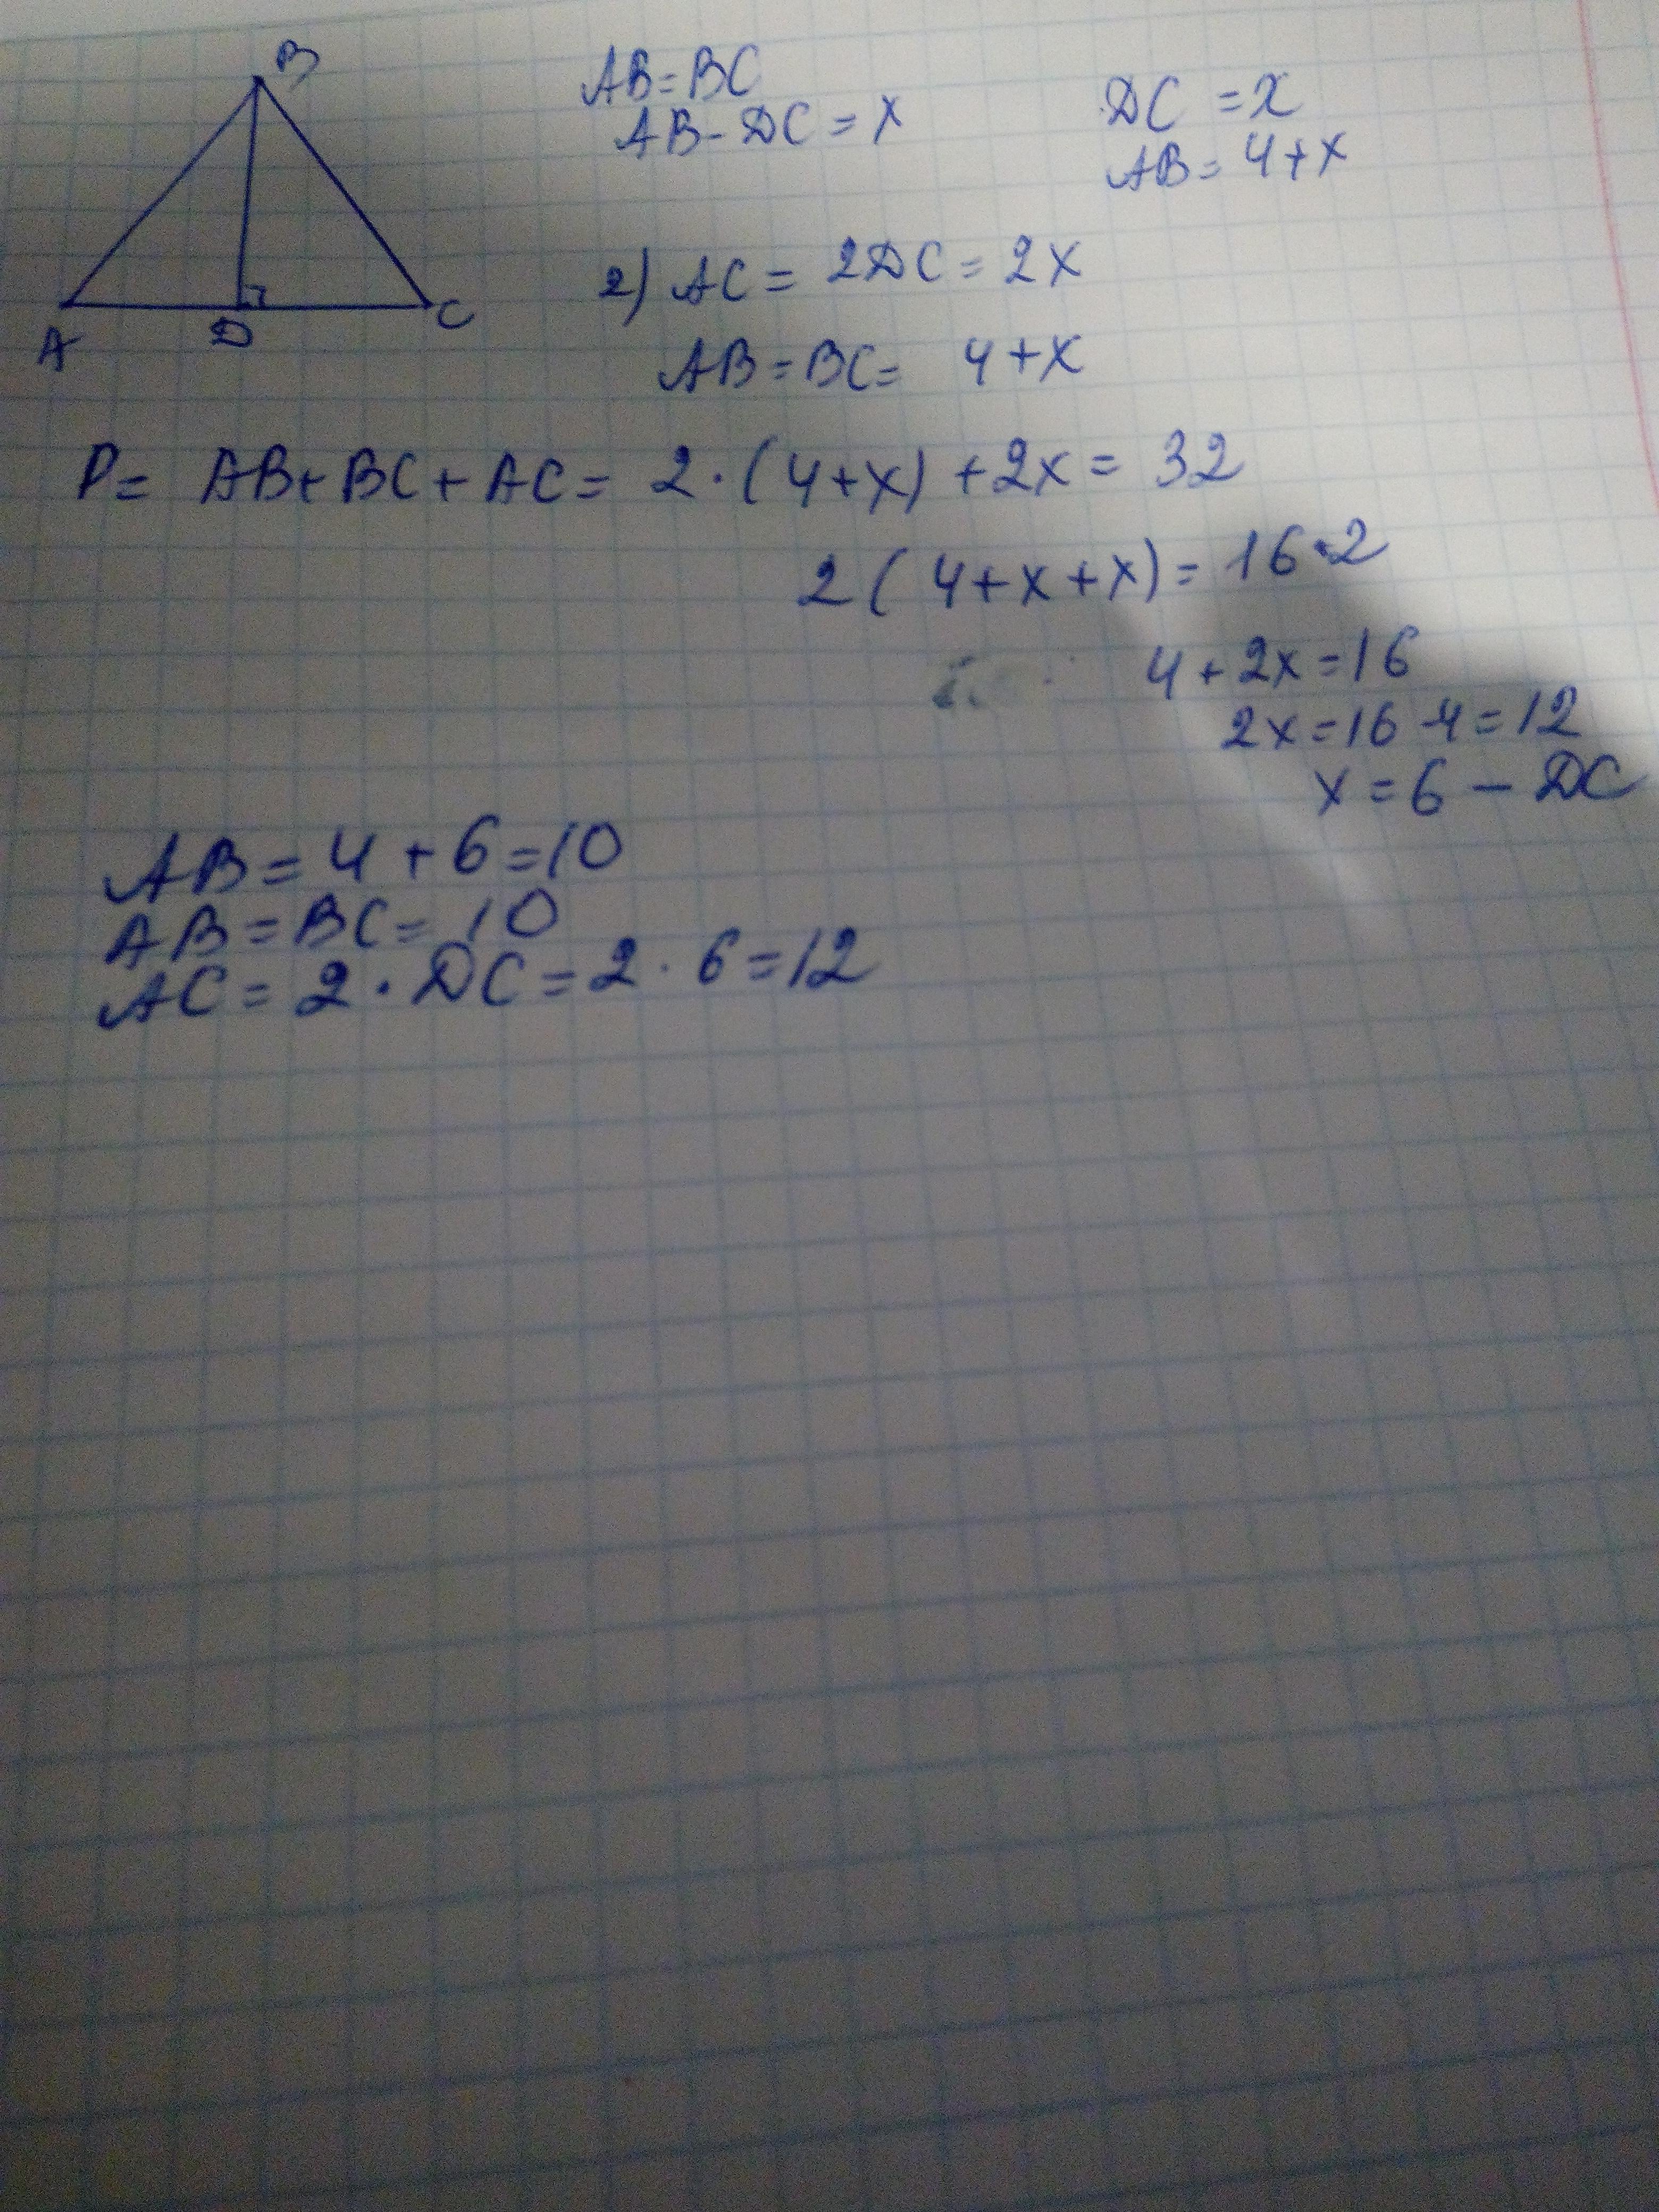 B
A
D
C
AB=BC
AB-DC=x
DC=x
AB=4+x
2) AC=2DC=2x
AB=BC=4+x
P=AB+BC+AC=2·(4+x)+2x=32
2(4+x+x)=16·2
4+2x=16
2x=16-4=12
x=6-DC
AB=4+6=10
AB=BC=10
AC=2·DC=2·6=12